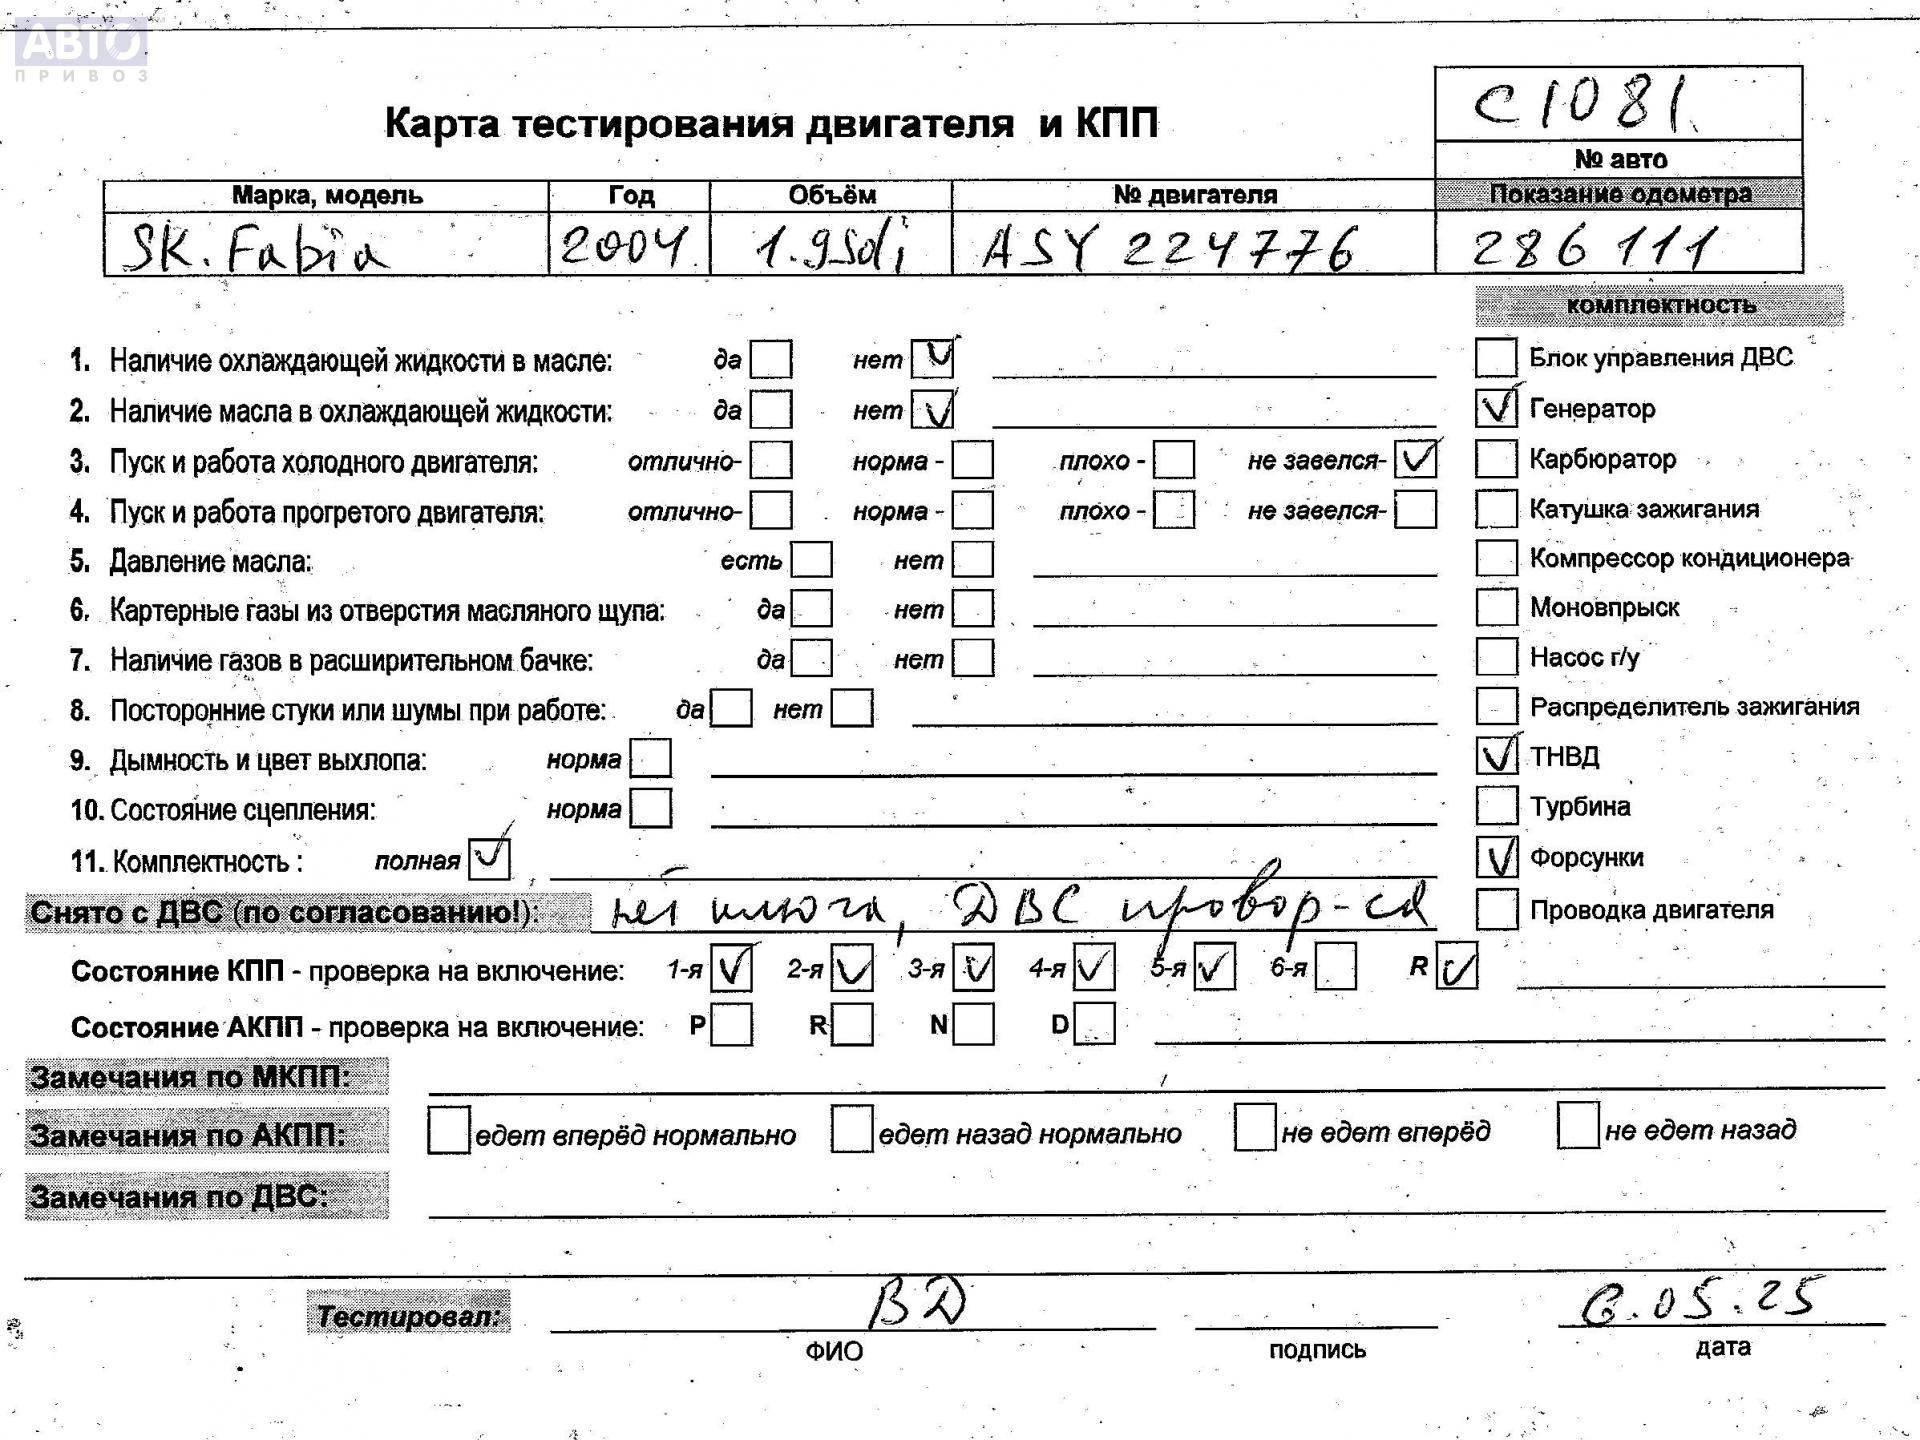 АВТО
ПРИВОЗ
C1081
Карта тестирования двигателя и КПП
№ авто
Марка, модель Год Объём № двигателя Показание одометра
SK. Fabia 2004 1.9sdi ASY 224776 286 111
комплектность
1. Наличие охлаждающей жидкости в масле: да нет Блок управления ДВС
2. Наличие масла в охлаждающей жидкости: да нет Генератор
3. Пуск и работа холодного двигателя: отлично- норма - плохо - не завелся- Карбюратор
4. Пуск и работа прогретого двигателя: отлично- норма - плохо - не завелся- Катушка зажигания
5. Давление масла: есть нет Компрессор кондиционера
6. Картерные газы из отверстия масляного щупа: да нет Моновпрыск
7. Наличие газов в расширительном бачке: да нет Насос г/у
8. Посторонние стуки или шумы при работе: да нет Распределитель зажигания
9. Дымность и цвет выхлопа: норма ТНВД
10. Состояние сцепления: норма Турбина
11. Комплектность : полная Форсунки
Снято с ДВС (по согласованию!): нет ключа, ДВС провор-ся Проводка двигателя
Состояние КПП - проверка на включение: 1-я 2-я 3-я 4-я 5-я 6-я R
Состояние АКПП - проверка на включение: P R N D
Замечания по МКПП:
Замечания по АКПП: едет вперёд нормально едет назад нормально не едет вперёд не едет назад
Замечания по ДВС:
Тестировал: ВД 6.05.25
ФИО подпись дата